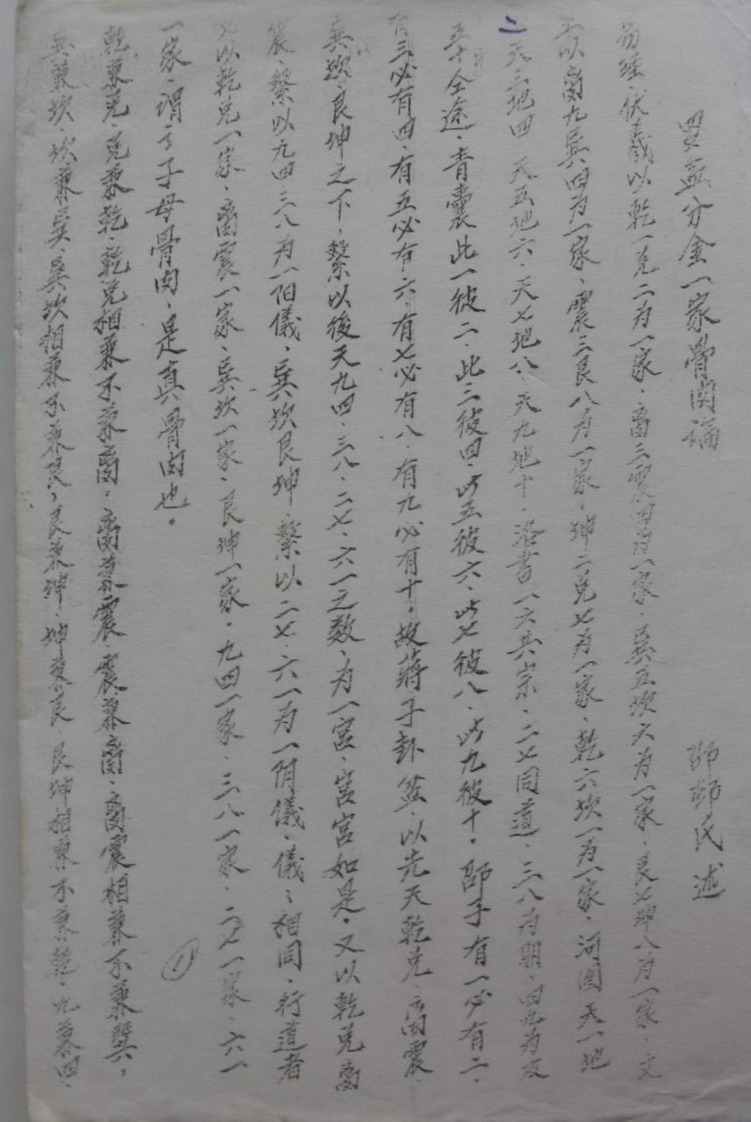 罗盆分金一家骨肉论 邵邨氏述
易经·伏羲以乾一兑二为一家·离三震四为一家·巽五坎六为一家·艮七坤八为一家·文
王以离九巽四为一家·震三艮八为一家·坤二兑七为一家·乾六坎一为一家·河图天一地
二天三地四·天五地六·天七地八·天九地十·洛書一六共宗·二七同道·三八为朋·四九为友
五十仝途·青囊此一彼二·此三彼四·此五彼六·此七彼八·此九彼十·邵子有一必有二·
有三必有四·有五必有六·有七必有八·有九必有十·故蒋子卦盆·以先天乾兑·离震·
巽坎·艮坤之下·繫以後天九四·三八·二七·六一之数·为一宫·宫宫如是·又以乾兑离
震·繫以九四三八为一阳儀·巽坎艮坤·繫以二七·六一为一阴儀·儀々相同·行道者
必以乾兑一家·离震一家·巽坎一家·艮坤一家·九四一家·三八一家·二七一家·六一
一家·谓之子母骨肉·是真骨肉也。
乾兼兑·兑兼乾·乾兑相兼不兼离·离兼震·震兼离·离震相兼不兼巽·
巽兼坎·坎兼巽·巽坎相兼不兼艮·艮兼坤·坤兼艮·艮坤相兼不兼乾·九兼四·
①